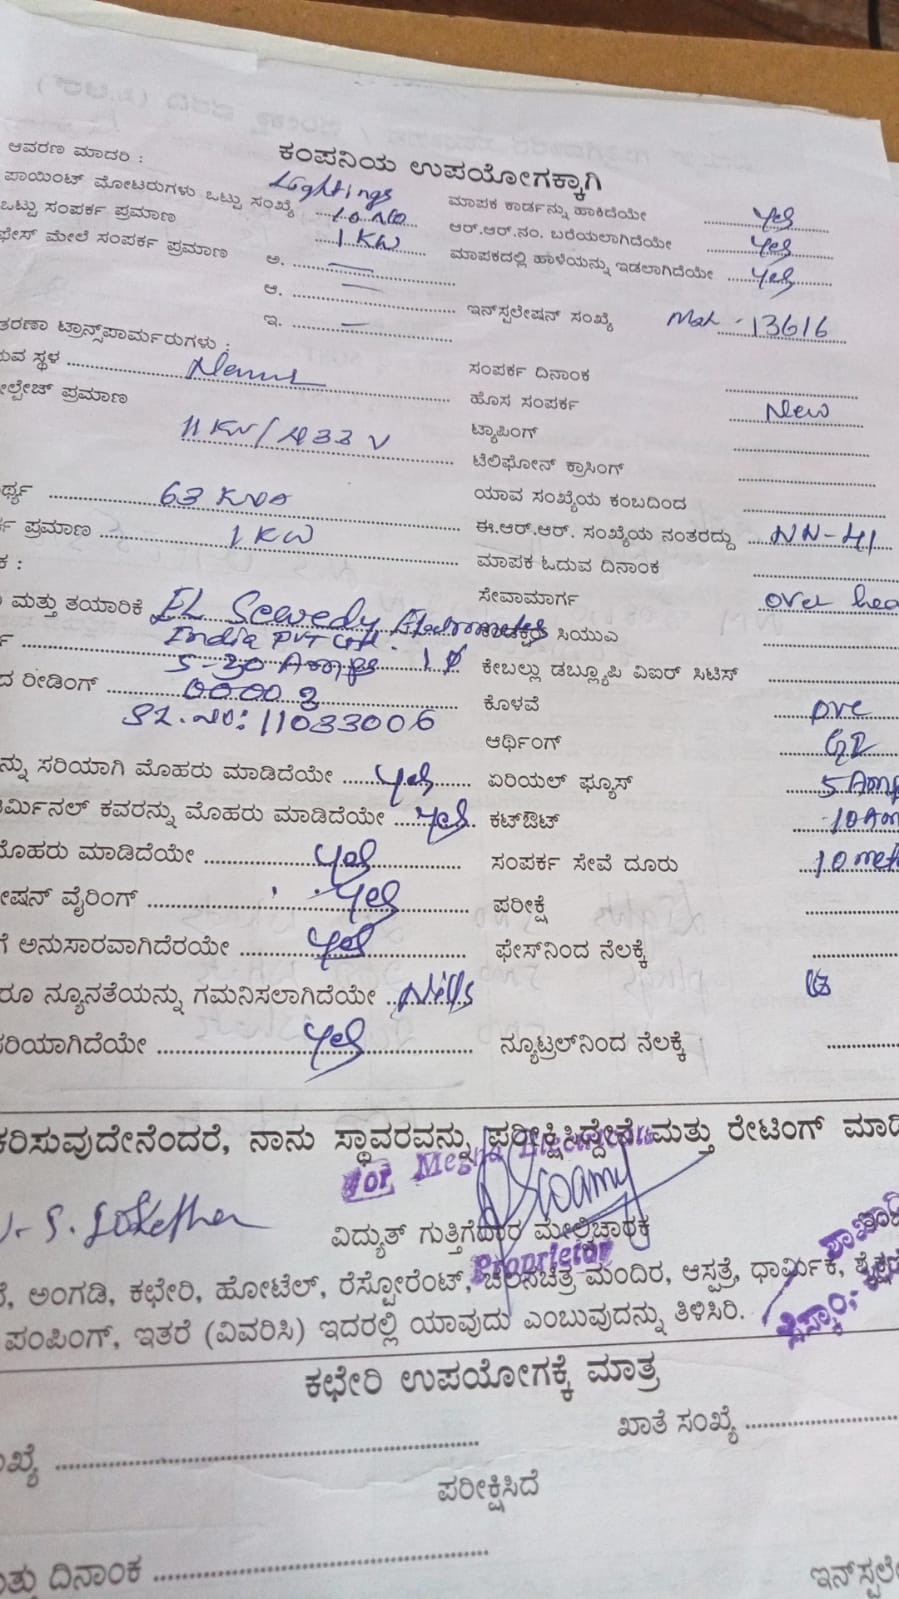 ಕಂಪನಿಯ ಉಪಯೋಗಕ್ಕಾಗಿ
ಆವರಣ ಮಾದರಿ : Lightings
ಪಾಯಿಂಟ್ ಮೋಟರುಗಳು ಒಟ್ಟು ಸಂಖ್ಯೆ 10 No ಮಾಪಕ ಕಾರ್ಡನ್ನು ಹಾಕಿದೆಯೇ Yes
ಒಟ್ಟು ಸಂಪರ್ಕ ಪ್ರಮಾಣ 1 KW ಆರ್.ಆರ್.ನಂ. ಬರೆಯಲಾಗಿದೆಯೇ Yes
ಫೇಸ್ ಮೇಲೆ ಸಂಪರ್ಕ ಪ್ರಮಾಣ ಅ. ಮಾಪಕದಲ್ಲಿ ಹಾಳೆಯನ್ನು ಇಡಲಾಗಿದೆಯೇ Yes
ಆ. ಇನ್‌ಸ್ಪಲೇಷನ್ ಸಂಖ್ಯೆ 13616
ಇ.
ತರಣಾ ಟ್ರಾನ್ಸ್‌ಪಾರ್ಮರುಗಳು : ಸಂಪರ್ಕ ದಿನಾಂಕ
ಸ್ಥಳ ಹೊಸ ಸಂಪರ್ಕ New
ಪ್ರಮಾಣ 11 KV/433 V ಟ್ಯಾಪಿಂಗ್
ಟೆಲಿಫೋನ್ ಕ್ರಾಸಿಂಗ್
63 KVA ಯಾವ ಸಂಖ್ಯೆಯ ಕಂಬದಿಂದ
ಪ್ರಮಾಣ 1 KW ಈ.ಆರ್.ಆರ್. ಸಂಖ್ಯೆಯ ನಂತರದ್ದು NN-41
ಮಾಪಕ ಓದುವ ದಿನಾಂಕ
ಮತ್ತು ತಯಾರಿಕೆ EL Sewedy Electrometer ಸೇವಾಮಾರ್ಗ over hea
India PVT Ltd. ಸಿಯುವ
5-30 Amps 1 Ø ಕೇಬಲ್ಲು ಡಬ್ಲ್ಯೂಪಿ ವಿಐರ್ ಸಿಟಿಸ್
ದ ರೀಡಿಂಗ್ 00002 ಕೊಳವೆ pvc
SL.No: 11033006 ಆರ್ಥಿಂಗ್ GI
ನ್ನು ಸರಿಯಾಗಿ ಮೊಹರು ಮಾಡಿದೆಯೇ Yes ಏರಿಯಲ್ ಫ್ಯೂಸ್ 5 Amp
ರ್ಮಿನಲ್ ಕವರನ್ನು ಮೊಹರು ಮಾಡಿದೆಯೇ Yes ಕಟ್‌ಔಟ್ 10 Am
ಮೊಹರು ಮಾಡಿದೆಯೇ Yes ಸಂಪರ್ಕ ಸೇವೆ ದೂರು 10 met
ೇಷನ್ ವೈರಿಂಗ್ Yes ಪರೀಕ್ಷೆ
ಗೆ ಅನುಸಾರವಾಗಿದೆರಯೇ Yes ಫೇಸ್‌ನಿಂದ ನೆಲಕ್ಕೆ
ರೂ ನ್ಯೂನತೆಯನ್ನು ಗಮನಿಸಲಾಗಿದೆಯೇ Nills
ಸರಿಯಾಗಿದೆಯೇ Yes ನ್ಯೂಟ್ರಲ್‌ನಿಂದ ನೆಲಕ್ಕೆ
ಕರಿಸುವುದೇನೆಂದರೆ, ನಾನು ಸ್ಥಾವರವನ್ನು ಪರೀಕ್ಷಿಸಿದ್ದೇನೆ ಮತ್ತು ರೇಟಿಂಗ್ ಮಾಡಿ
For
ವಿದ್ಯುತ್ ಗುತ್ತಿಗೆದಾರ ಮೇಲ್ವಿಚಾರಕ
Proprietor
ೆ, ಅಂಗಡಿ, ಕಛೇರಿ, ಹೋಟೆಲ್, ರೆಸ್ಟೋರೆಂಟ್, ಚಲನಚಿತ್ರ ಮಂದಿರ, ಆಸ್ಪತ್ರೆ, ಧಾರ್ಮಿಕ, ಶೈಕ್ಷಣ
ಪಂಪಿಂಗ್, ಇತರೆ (ವಿವರಿಸಿ) ಇದರಲ್ಲಿ ಯಾವುದು ಎಂಬುವುದನ್ನು ತಿಳಿಸಿರಿ.
ಕಛೇರಿ ಉಪಯೋಗಕ್ಕೆ ಮಾತ್ರ
ಖ್ಯೆ ಖಾತೆ ಸಂಖ್ಯೆ
ಪರೀಕ್ಷಿಸಿದೆ
ತ್ತು ದಿನಾಂಕ ಇನ್‌ಸ್ಪಲೇ